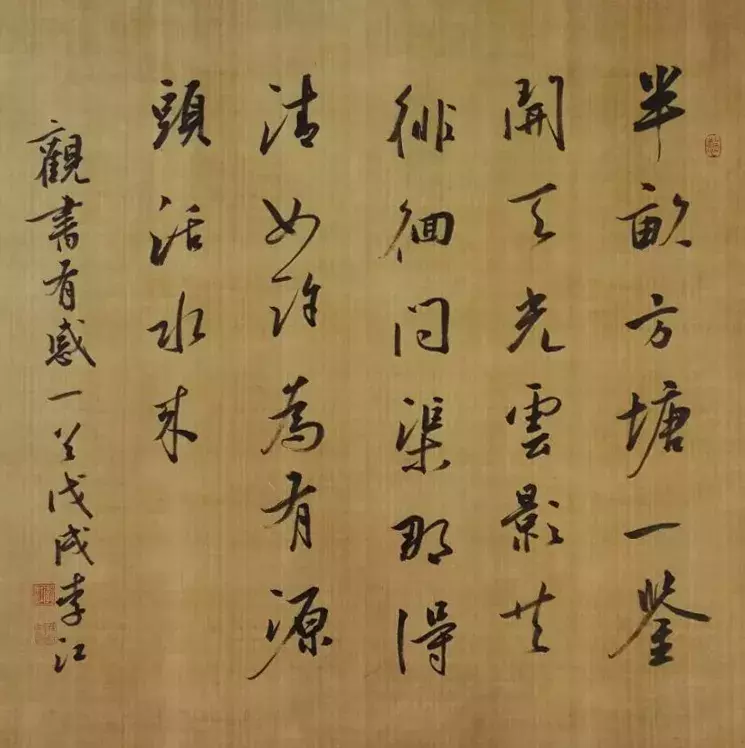 半畝方塘一鑒
開天光雲影共
徘徊問渠那得
清如許為有源
頭活水來
觀書有感一首戊戌李江